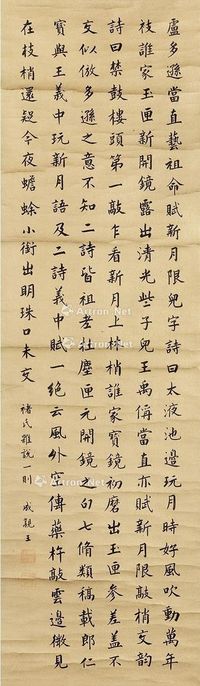 盧多遜當直藝祖命賦新月限兒字詩曰太液池邊玩月時好風吹動萬年
枝誰家玉匣新開鏡露出清光些子兒王禹偁當直亦賦新月限敲梢交韵
詩曰禁鼓樓頭第一敲乍看新月上林梢誰家寶鏡初磨出玉匣參差蓋不
交似倣多遜之意不知二詩皆祖老杜塵匣元開鏡之句七脩類稿載郎仁
寶與王義中玩新月語及二詩義中賦一絕云風外窓傳藥杵敲雲邊微見
在枝梢還疑今夜蟾蜍小銜出明珠口未交
褚氏雜說一則 成親王
Artron.Net